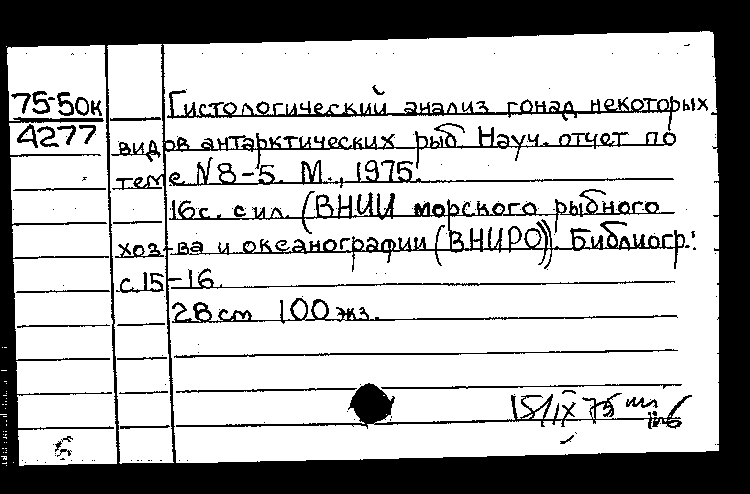 75-50к
4277
Гистологический анализ гонад некоторых
видов антарктических рыб. Науч. отчет по
теме N8-5. М., 1975.
16с. с ил. (ВНИИ морского рыбного
хоз-ва и океанографии (ВНИРО)). Библиогр.:
с.15-16.
28 см 100 экз.
15/IX 75
6